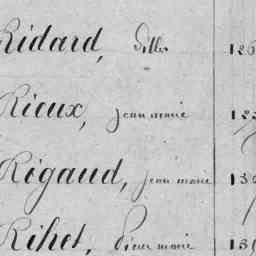 Ridard, Gilles 126
Rieux, jean marie
Rigaud, jean marie 130
Rihet, pierre marie 131